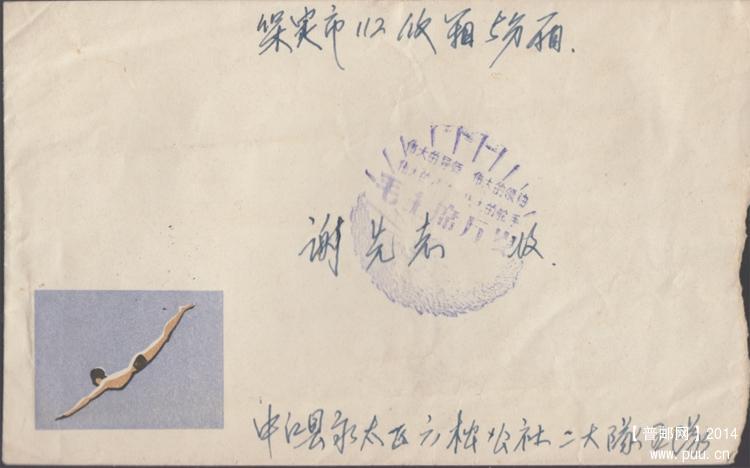 保定市112信箱5分箱.
伟大的导师 伟大的领袖
伟大的 伟大的舵手
毛主席万岁
谢先志 收.
中江县永太区六松公社二大队
【普邮网】2014
www.puu.cn